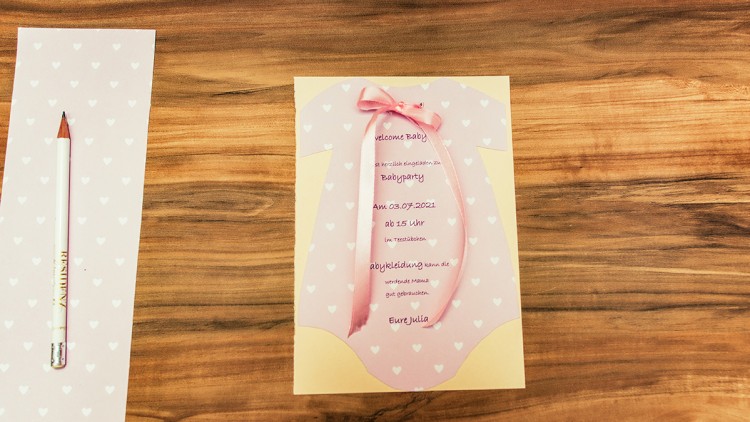 welcome Baby
herzlich eingeladen zu
Babyparty
Am 03.07.2021
ab 15 Uhr
im Teestübchen
abykleidung kann die
werdende Mama
gut gebrauchen
Eure Julia
RESIDENZ